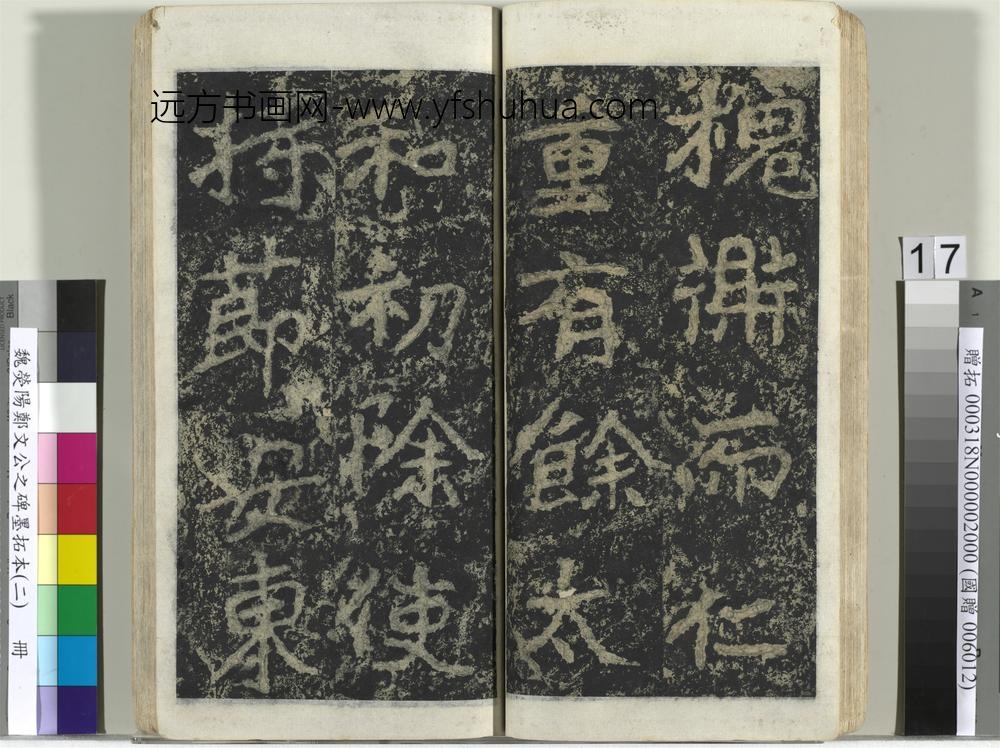 槐鼎而仁
重有餘太
和初除使
持節安東
远方书画网-www.yfshuhua.com
17
魏熒陽鄭文公之碑墨拓本(二) 冊
贈拓 000318N000002000 (國贈 006012)